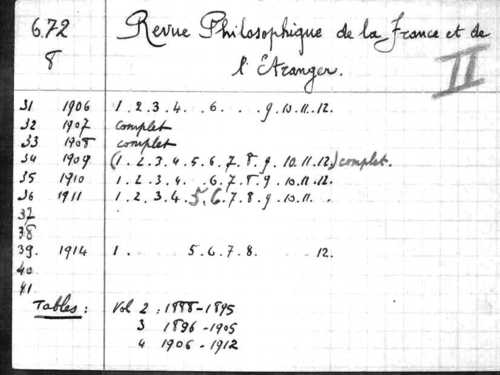 6.72 Revue Philosophique de la France et de
8 l'Etranger. II
31 1906 1.2.3.4. .6. . .9.10.11.12.
32 1907 complet
33 1908 complet
34 1909 (1.2.3.4.5.6.7.8.9.10.11.12.) complet.
35 1910 1.2.3.4. .6.7.8.9.10.11.12.
36 1911 1.2.3.4.5.6.7.8.9.10.11. .
37
38
39. 1914 1. 5.6.7.8. 12.
40.
41.
Tables: Vol 2 : 1888-1895
3 1896-1905
4 1906-1912